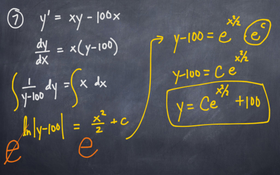 ⑦ y' = xy - 100x
dy/dx = x(y-100)
∫ 1/(y-100) dy = ∫ x dx
ln|y-100| = x²/2 + c
e e
y-100 = e^(x²/2) e^c
y-100 = C e^(x²/2)
y = Ce^(x²/2) + 100